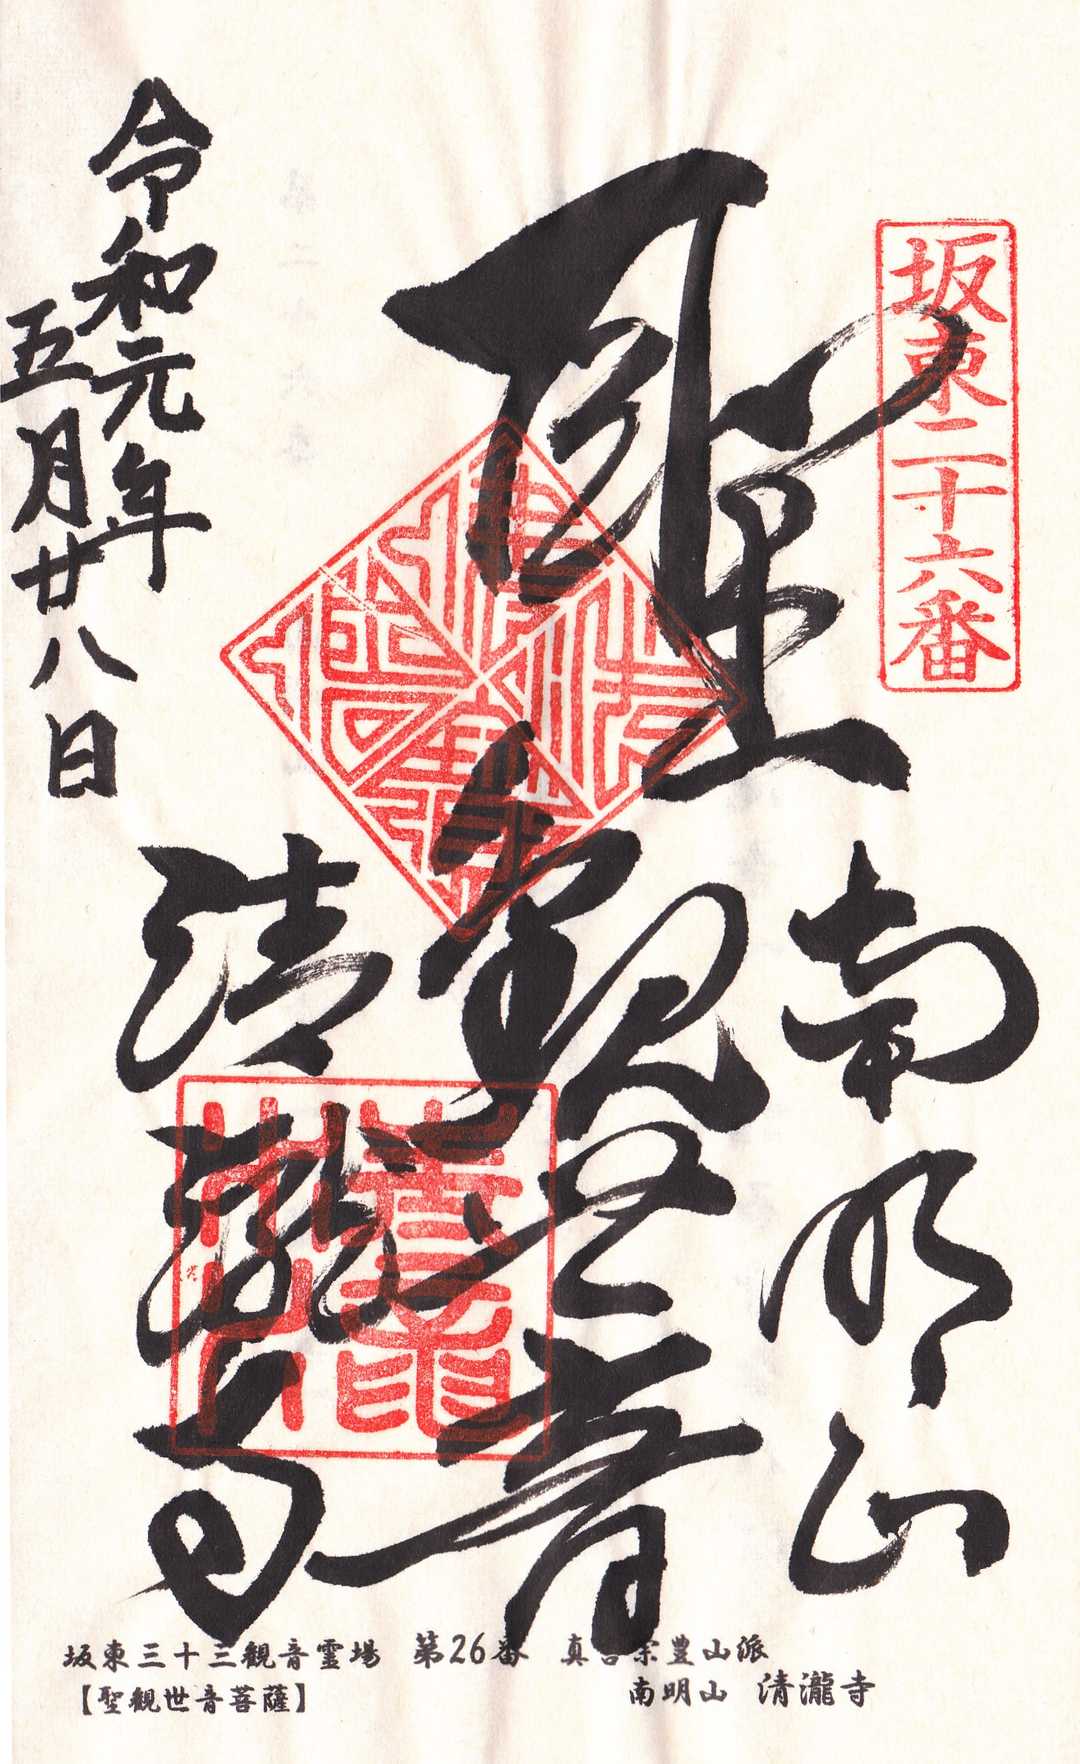 坂東二十六番
南明山
聖観世音
清瀧寺
令和元年
五月廿八日
坂東三十三観音霊場 第26番 真言宗豊山派
【聖観世音菩薩】 南明山 清瀧寺